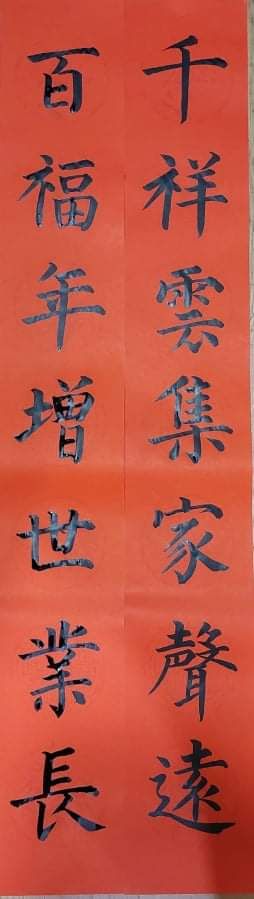 千祥雲集家聲遠
百福年增世業長